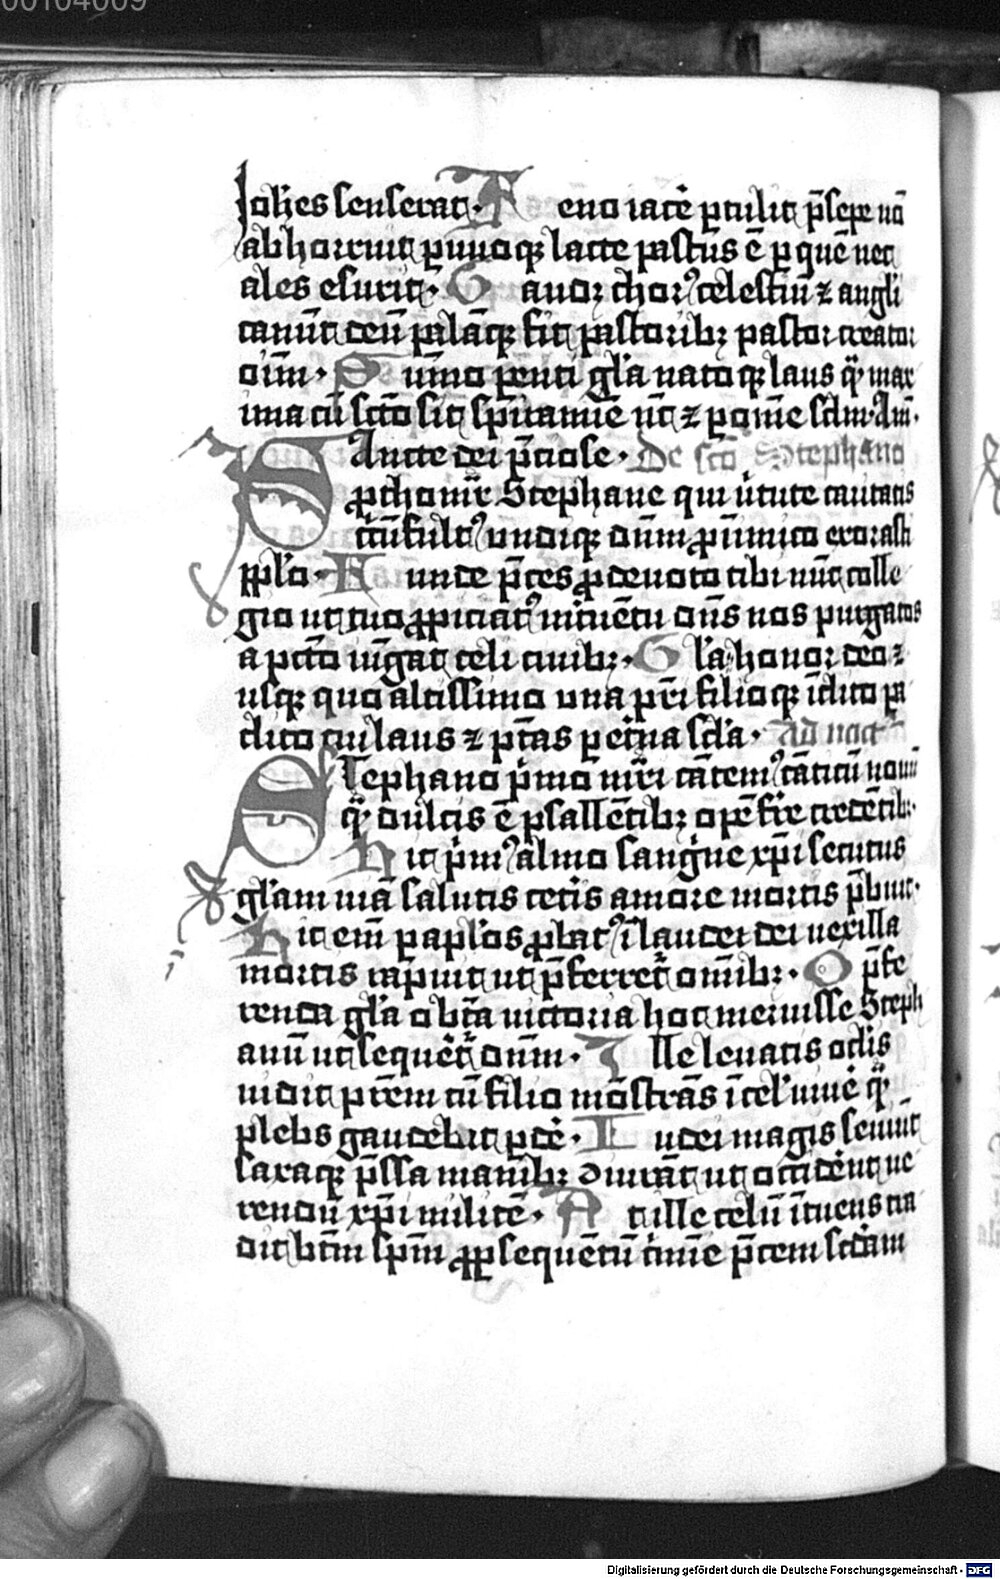 00104009
Johēs senserat. Feno iacē ꝑtulit p̄sepe nō
abhorruit paruoqꝫ lacte pastus ē ꝑ quē nec
ales esurit. Gaudꝫ chorꝰ celestiū ⁊ angli
canūt deū palāqꝫ fit pastoribꝫ pastor creator
oīm. Sūmo pēnti gl̄a natoqꝫ laus q̄ max
ima cū scō sit sp̄itamīe nūc ⁊ ꝑ oīme sclm Am̄.
Sancte dei p̄ciose. De sc̄o Stephano
ꝓthomr̄ Stephane qui v̄tute caritatis
circūfultꝰ vndiqꝫ dnm̄ ꝓ inimico exorasti
ppl̄o. Funde p̄ces ꝓ deuoto tibi nūc colle
gio ut tuo ꝓpiciatꝰ intuētu dn̄s nos purgatos
a pctō iūgat celi ciuibꝫ. Gl̄a ⁊ honor deo ⁊
usqꝫ quo altissimo vna pr̄i filioqꝫ īclito pa
clito cui laus ⁊ p̄tas ꝑ et̄na scl̄a. Ad noct̄
Stephano p̄mo mr̄i cātemꝰ cāticū nouū
q̄ dulcis ē psallētibꝫ opē fr̄e credētibꝫ
Hic p̄mꝰ almo sangu̇ne xp̄i secutus
gl̄am uiā salutis cet̄is amore mortis p̄buit.
Hic em̄ ꝑ apl̄os ꝓbatꝰ ī laude dei uexilla
mortis rapuit ut p̄ferret̄ om̄ibꝫ. O p̄fe
renda gl̄a obtā uictoria hoc meruisse Steph
anū ut sequet̄ dnm̄. Ille leuatis oclis
uidit prēm cū filio mōstrās ī cel̄ uiuē q̄
plebs gaudebat pdē. Iudei magis seuiūt
saxaqꝫ p̄ssa manibꝫ diuirāt ut occidēnt ue
rendū xp̄i militē. At ille celū ītuens tra
dit btm̄ sp̄m ꝓ ꝑsequētū crimīe p̄cem scdam
Digitalisierung gefördert durch die Deutsche Forschungsgemeinschaft - DFG